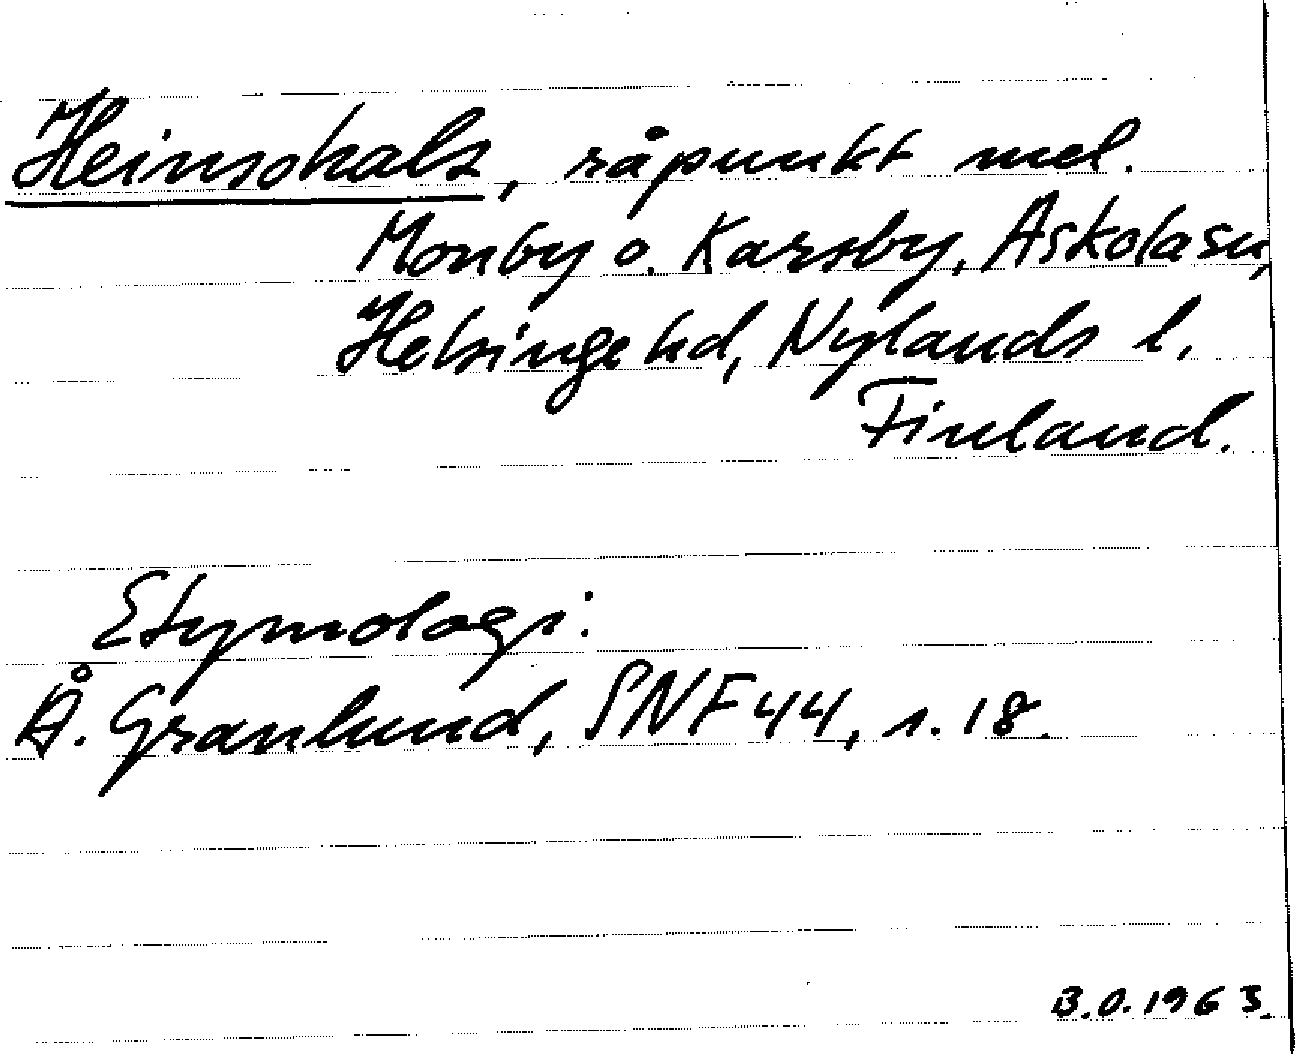 Heinsohals, råpunkt mel.
Monby o. Karsby, Askola sn,
Helsinge hd, Nylands l.
Finland.
Etymologi:
Å. Granlund, SNF 44, s. 18.
B.O. 1963.